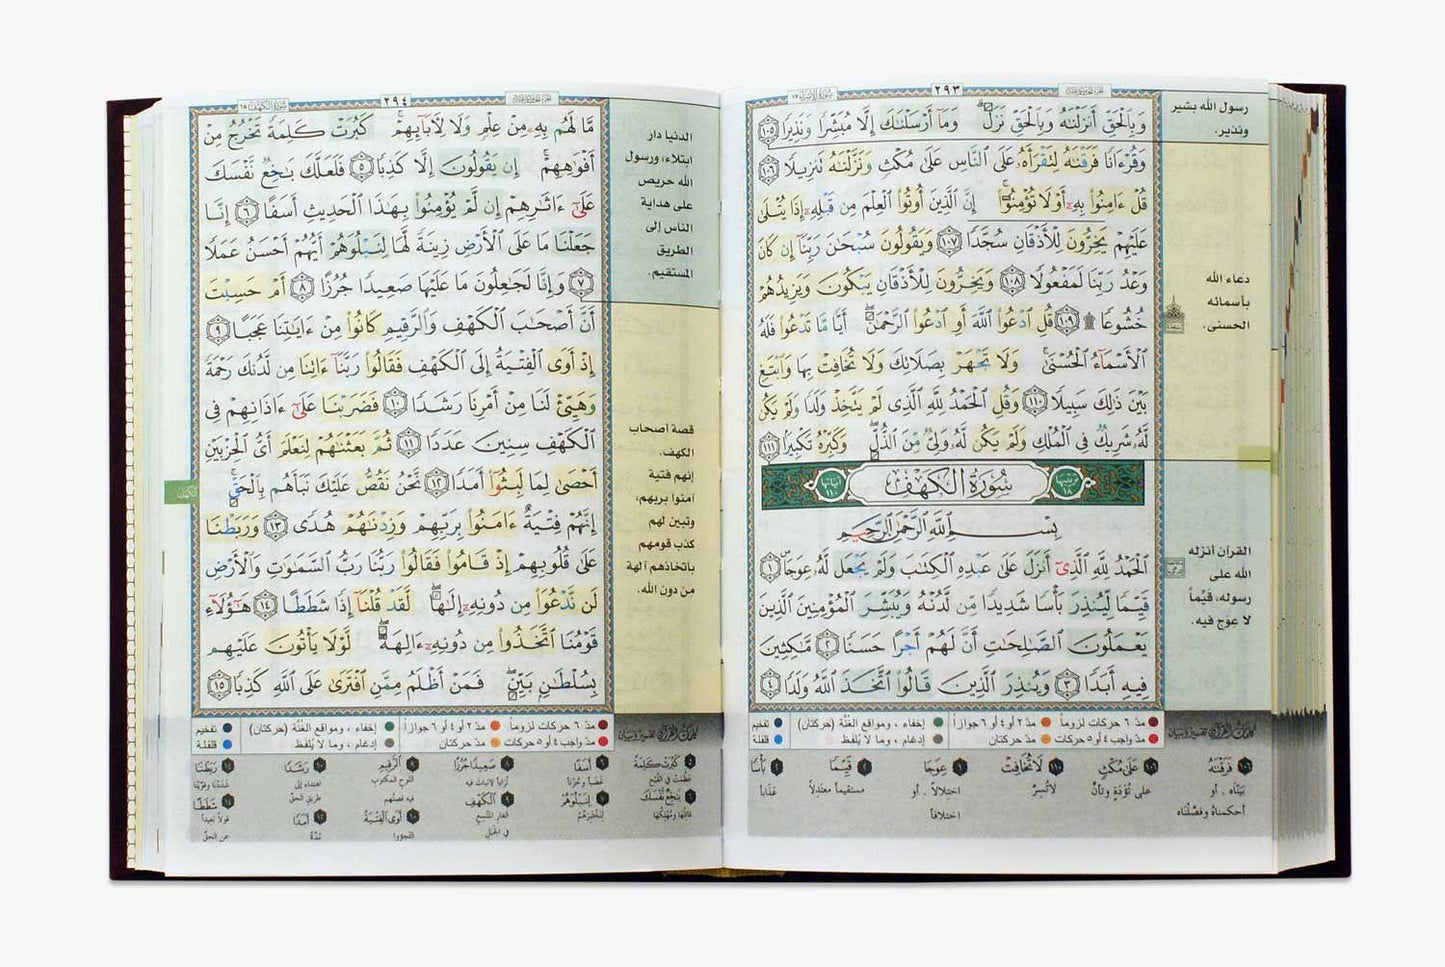 سورة الإسراء ١٧
٢٩٣
الجزء الخامس عشر
وَبِٱلْحَقِّ أَنزَلْنَٰهُ وَبِٱلْحَقِّ نَزَلَ ۗ وَمَآ أَرْسَلْنَٰكَ إِلَّا مُبَشِّرًا وَنَذِيرًا ١٠٥
وَقُرْءَانًا فَرَقْنَٰهُ لِتَقْرَأَهُۥ عَلَى ٱلنَّاسِ عَلَىٰ مُكْثٍ وَنَزَّلْنَٰهُ تَنزِيلًا ١٠٦
قُلْ ءَامِنُوا۟ بِهِۦٓ أَوْ لَا تُؤْمِنُوٓا۟ ۚ إِنَّ ٱلَّذِينَ أُوتُوا۟ ٱلْعِلْمَ مِن قَبْلِهِۦٓ إِذَا يُتْلَىٰ
عَلَيْهِمْ يَخِرُّونَ لِلْأَذْقَانِ سُجَّدًا ١٠٧ وَيَقُولُونَ سُبْحَٰنَ رَبِّنَآ إِن كَانَ
وَعْدُ رَبِّنَا لَمَفْعُولًا ١٠٨ وَيَخِرُّونَ لِلْأَذْقَانِ يَبْكُونَ وَيَزِيدُهُمْ
خُشُوعًا ۩ ١٠٩ قُلِ ٱدْعُوا۟ ٱللَّهَ أَوِ ٱدْعُوا۟ ٱلرَّحْمَٰنَ ۖ أَيًّا مَّا تَدْعُوا۟ فَلَهُ
ٱلْأَسْمَآءُ ٱلْحُسْنَىٰ ۚ وَلَا تَجْهَرْ بِصَلَاتِكَ وَلَا تُخَافِتْ بِهَا وَٱبْتَغِ
بَيْنَ ذَٰلِكَ سَبِيلًا ١١٠ وَقُلِ ٱلْحَمْدُ لِلَّهِ ٱلَّذِى لَمْ يَتَّخِذْ وَلَدًا وَلَمْ يَكُن
لَّهُۥ شَرِيكٌ فِى ٱلْمُلْكِ وَلَمْ يَكُن لَّهُۥ وَلِىٌّ مِّنَ ٱلذُّلِّ ۖ وَكَبِّرْهُ تَكْبِيرًا ١١١
ترتيبها ١٨ سُورَةُ الكَهْفِ آياتها ١١٠
بِسْمِ ٱللَّهِ ٱلرَّحْمَٰنِ ٱلرَّحِيمِ
ٱلْحَمْدُ لِلَّهِ ٱلَّذِىٓ أَنزَلَ عَلَىٰ عَبْدِهِ ٱلْكِتَٰبَ وَلَمْ يَجْعَل لَّهُۥ عِوَجَا ۜ ١
قَيِّمًا لِّيُنذِرَ بَأْسًا شَدِيدًا مِّن لَّدُنْهُ وَيُبَشِّرَ ٱلْمُؤْمِنِينَ ٱلَّذِينَ
يَعْمَلُونَ ٱلصَّٰلِحَٰتِ أَنَّ لَهُمْ أَجْرًا حَسَنًا ٢ مَّٰكِثِينَ
فِيهِ أَبَدًا ٣ وَيُنذِرَ ٱلَّذِينَ قَالُوا۟ ٱتَّخَذَ ٱللَّهُ وَلَدًا ٤
رسول الله بشير
ونذير.
دعاء الله
بأسمائه
الحسنى.
القرآن أنزله
الله على
رسوله، قيّماً
لا عوج فيه.
مدّ ٦ حركات لزوماً مدّ ٢ أو ٤ أو ٦ جوازاً إخفاء، ومواقع الغنّة (حركتان) تفخيم
مدّ واجب ٤ أو ٥ حركات مدّ حركتان إدغام، وما لا يُلفظ قلقلة
كلمات القرآن تفسير وبيان
١٠٦ فَرَقْنَٰهُ
بيّناه، أو
أحكمناه وفصّلناه
١٠٦ عَلَىٰ مُكْثٍ
على تُؤَدَةٍ وتأنٍّ
١١٠ لَا تُخَافِتْ
لا تُسِرَّ
١ عِوَجًا
اختلالاً، أو
اختلافاً
٢ قَيِّمًا
مستقيماً معتدلاً
٢ بَأْسًا
عذاباً
سورة الكهف ١٨
٢٩٤
الجزء الخامس عشر
مَّا لَهُم بِهِۦ مِنْ عِلْمٍ وَلَا لِءَابَآئِهِمْ ۚ كَبُرَتْ كَلِمَةً تَخْرُجُ مِنْ
أَفْوَٰهِهِمْ ۚ إِن يَقُولُونَ إِلَّا كَذِبًا ٥ فَلَعَلَّكَ بَٰخِعٌ نَّفْسَكَ
عَلَىٰٓ ءَاثَٰرِهِمْ إِن لَّمْ يُؤْمِنُوا۟ بِهَٰذَا ٱلْحَدِيثِ أَسَفًا ٦ إِنَّا
جَعَلْنَا مَا عَلَى ٱلْأَرْضِ زِينَةً لَّهَا لِنَبْلُوَهُمْ أَيُّهُمْ أَحْسَنُ عَمَلًا
٧ وَإِنَّا لَجَٰعِلُونَ مَا عَلَيْهَا صَعِيدًا جُرُزًا ٨ أَمْ حَسِبْتَ
أَنَّ أَصْحَٰبَ ٱلْكَهْفِ وَٱلرَّقِيمِ كَانُوا۟ مِنْ ءَايَٰتِنَا عَجَبًا ٩
إِذْ أَوَى ٱلْفِتْيَةُ إِلَى ٱلْكَهْفِ فَقَالُوا۟ رَبَّنَآ ءَاتِنَا مِن لَّدُنكَ رَحْمَةً
وَهَيِّئْ لَنَا مِنْ أَمْرِنَا رَشَدًا ١٠ فَضَرَبْنَا عَلَىٰٓ ءَاذَانِهِمْ فِى
ٱلْكَهْفِ سِنِينَ عَدَدًا ١١ ثُمَّ بَعَثْنَٰهُمْ لِنَعْلَمَ أَىُّ ٱلْحِزْبَيْنِ
أَحْصَىٰ لِمَا لَبِثُوٓا۟ أَمَدًا ١٢ نَّحْنُ نَقُصُّ عَلَيْكَ نَبَأَهُم بِٱلْحَقِّ ۚ
إِنَّهُمْ فِتْيَةٌ ءَامَنُوا۟ بِرَبِّهِمْ وَزِدْنَٰهُمْ هُدًى ١٣ وَرَبَطْنَا
عَلَىٰ قُلُوبِهِمْ إِذْ قَامُوا۟ فَقَالُوا۟ رَبُّنَا رَبُّ ٱلسَّمَٰوَٰتِ وَٱلْأَرْضِ
لَن نَّدْعُوَا۟ مِن دُونِهِۦٓ إِلَٰهًا ۖ لَّقَدْ قُلْنَآ إِذًا شَطَطًا ١٤ هَٰٓؤُلَآءِ
قَوْمُنَا ٱتَّخَذُوا۟ مِن دُونِهِۦٓ ءَالِهَةً ۖ لَّوْلَا يَأْتُونَ عَلَيْهِم
بِسُلْطَٰنٍۭ بَيِّنٍ ۖ فَمَنْ أَظْلَمُ مِمَّنِ ٱفْتَرَىٰ عَلَى ٱللَّهِ كَذِبًا ١٥
الدنيا دار
ابتلاء، ورسول
الله حريص
على هداية
الناس إلى
الطريق
المستقيم.
قصة أصحاب
الكهف.
إنهم فتية
آمنوا بربهم،
وتبين لهم
كذب قومهم
باتخاذهم آلهة
من دون الله.
الكهف
مدّ ٦ حركات لزوماً مدّ ٢ أو ٤ أو ٦ جوازاً إخفاء، ومواقع الغنّة (حركتان) تفخيم
مدّ واجب ٤ أو ٥ حركات مدّ حركتان إدغام، وما لا يُلفظ قلقلة
كلمات القرآن تفسير وبيان
٥ كَبُرَتْ كَلِمَةً
عظمت في القبح
٦ بَٰخِعٌ نَّفْسَكَ
قاتلها ومهلكها
٦ أَسَفًا
غضباً وحزناً
٧ لِنَبْلُوَهُمْ
لنختبرهم
٨ صَعِيدًا جُرُزًا
تراباً لا نبات فيه
٩ الْكَهْفِ
الغار المتّسع
في الجبل
٩ الرَّقِيمِ
اللوح المكتوب
فيه قصتهم
١٠ أَوَى الْفِتْيَةُ
التجؤوا
١٠ رَشَدًا
اهتداء إلى
طريق الحق
١٢ أَمَدًا
مدّة
١٤ رَبَطْنَا
شددنا وقوّينا
١٤ شَطَطًا
قولاً بعيداً
عن الحق